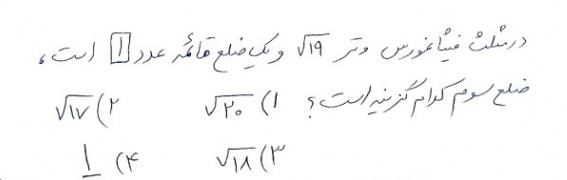 در مثلث فیثاغورس وتر √۱۹ و یک ضلع قائمه عدد ۱ است،
ضلع سوم کدام گزینه است؟ ۱) √۲۰ ۲) √۱۷
۳) √۱۸ ۴) ۱